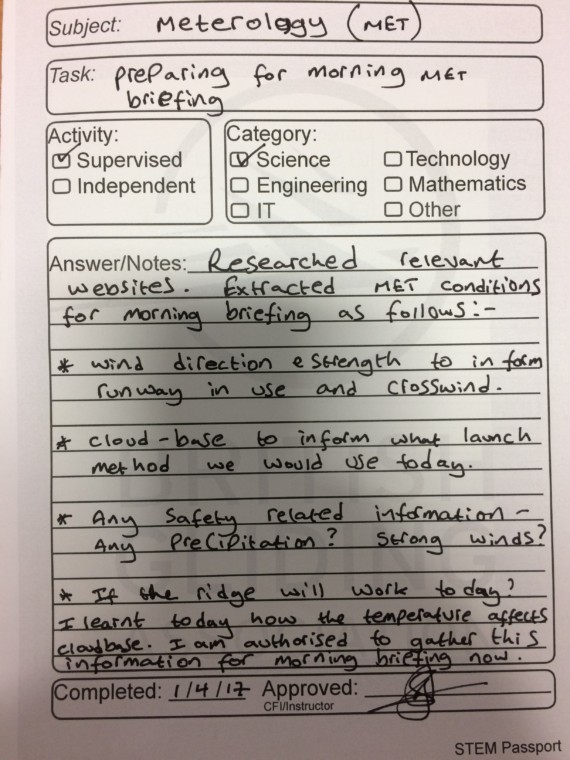 Subject: Meterology (MET)
Task: preparing for morning MET
briefing
Activity:
Supervised
Independent
Category:
Science
Engineering
IT
Technology
Mathematics
Other
Answer/Notes: Researched relevant
websites. Extracted MET conditions
for morning briefing as follows:-
* wind direction & strength to inform
runway in use and crosswind.
* cloud-base to inform what launch
method we would use today.
* Any safety related information -
Any Precipitation? Strong winds?
* If the ridge will work today?
I learnt today how the temperature affects
cloudbase. I am authorised to gather this
information for morning briefing now.
Completed: 1/4/17 Approved:
CFI/Instructor
STEM Passport
BRITISH
GLIDING